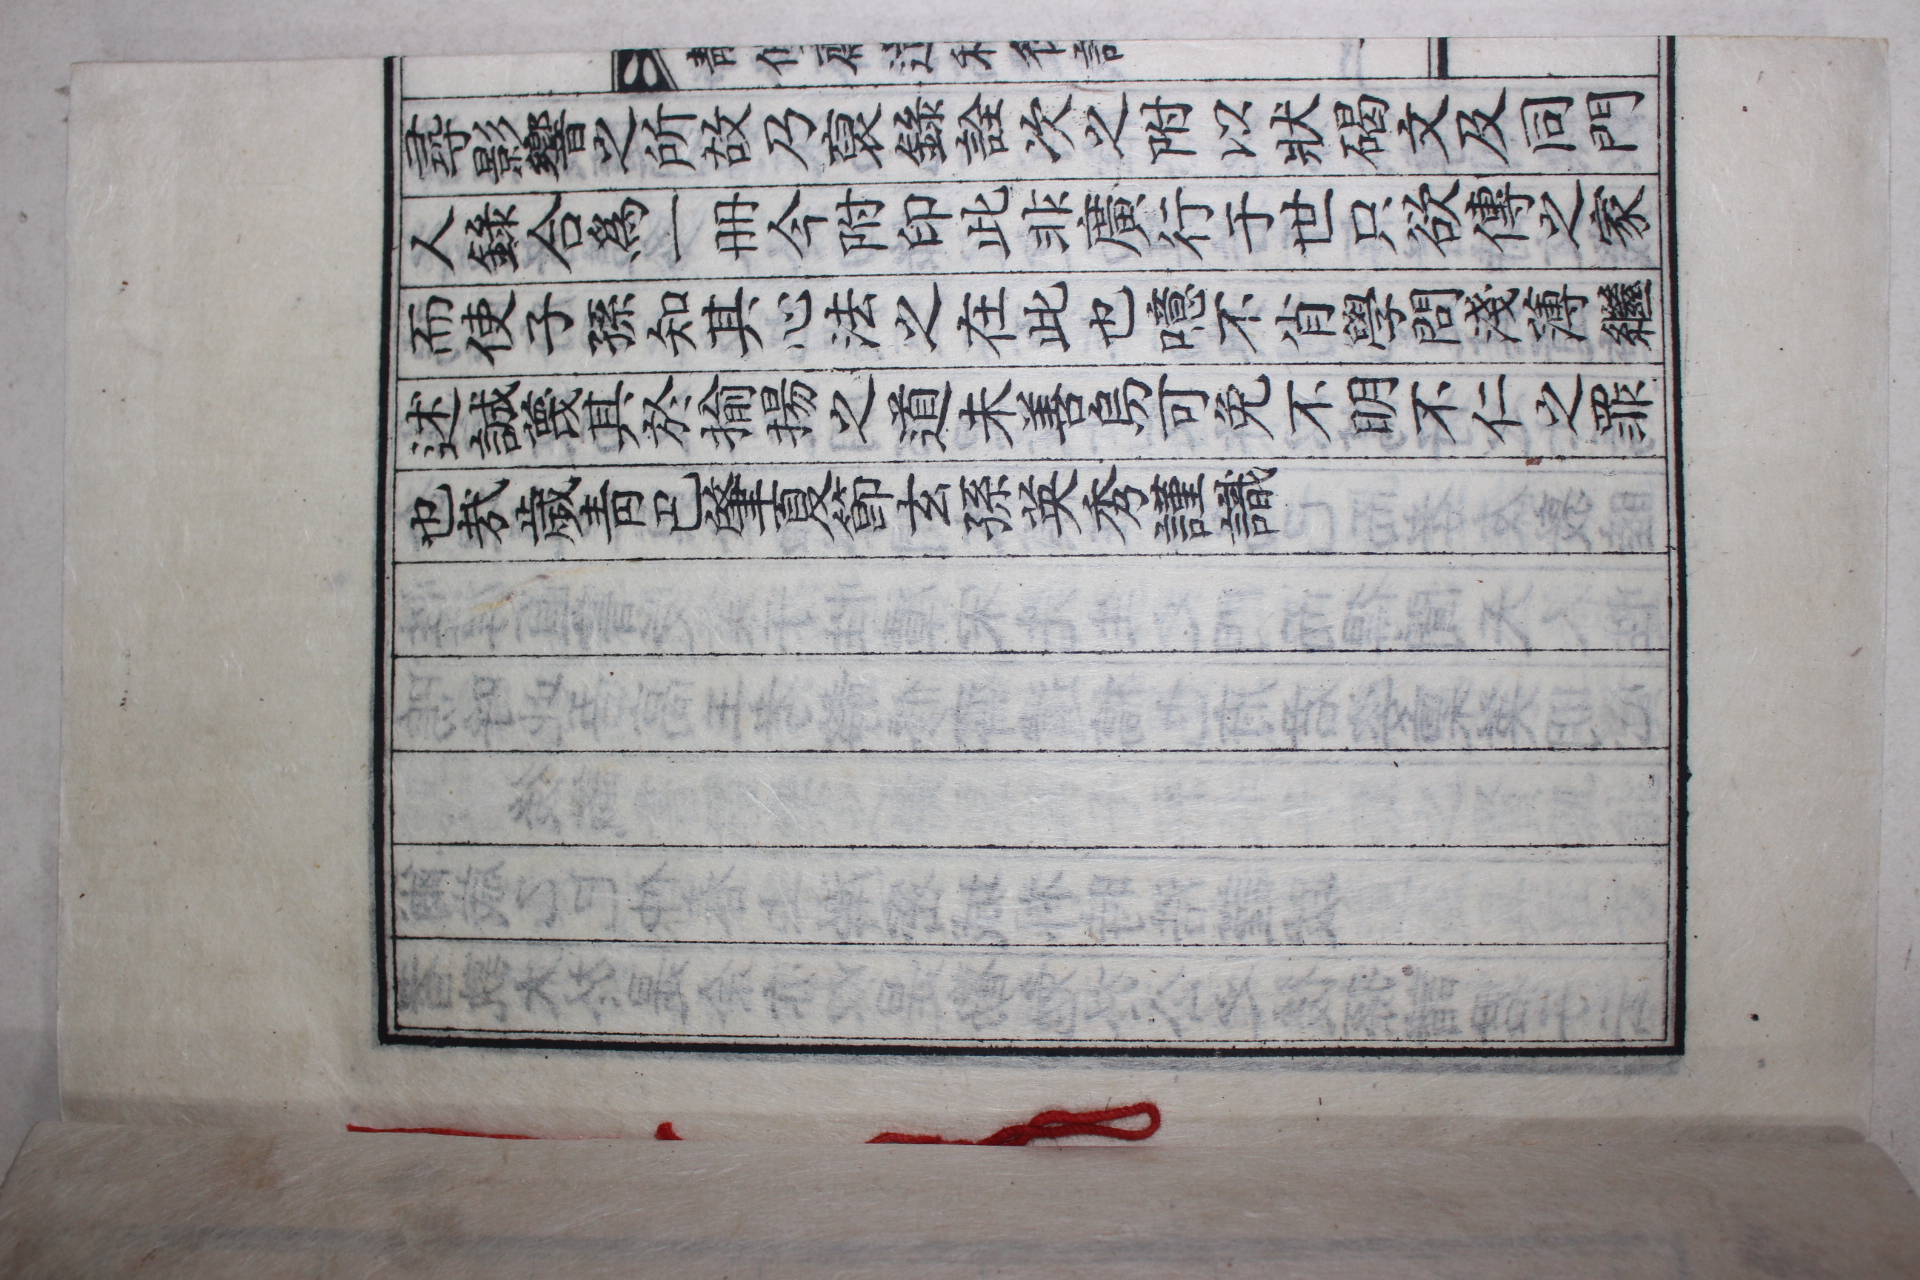 尋影響之所故乃裒錄詮次之附以狀碣文及同門
人錄合爲一冊今附印此非廣行于世只欲傳之家
而使子孫知其心法之在此也噫不肖學問淺薄繼
述誠蔑其於揄揚之道未善烏可免不明不仁之罪
也哉歲靑巳肇夏節玄孫英秀謹識